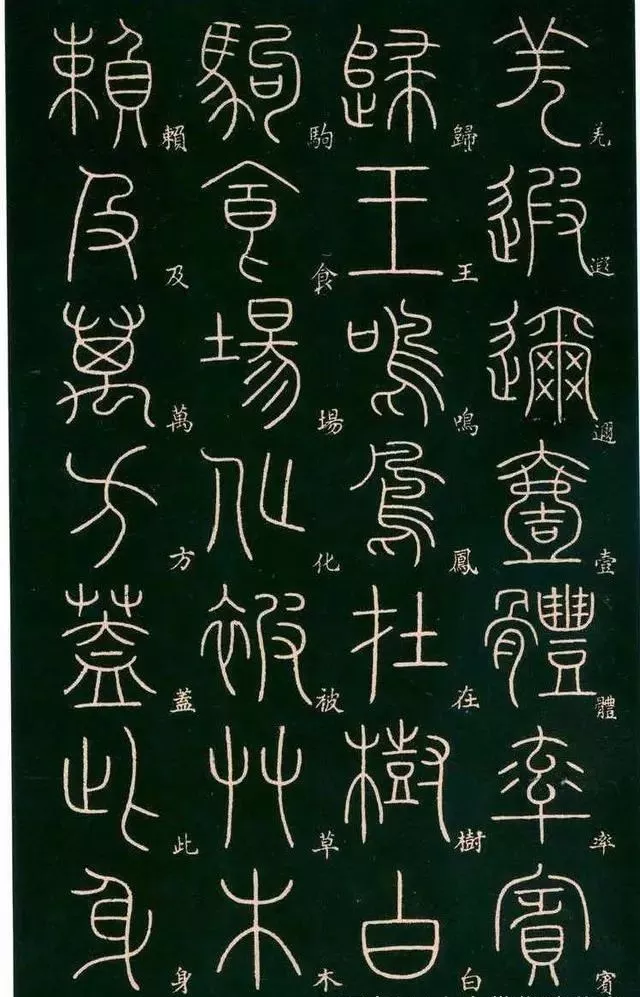 羌遐邇壹體率賓
羌遐邇壹體率賓
歸王鳴鳳在樹白
歸王鳴鳳在樹白
駒食場化被草木
駒食場化被草木
賴及萬方蓋此身
賴及萬方蓋此身